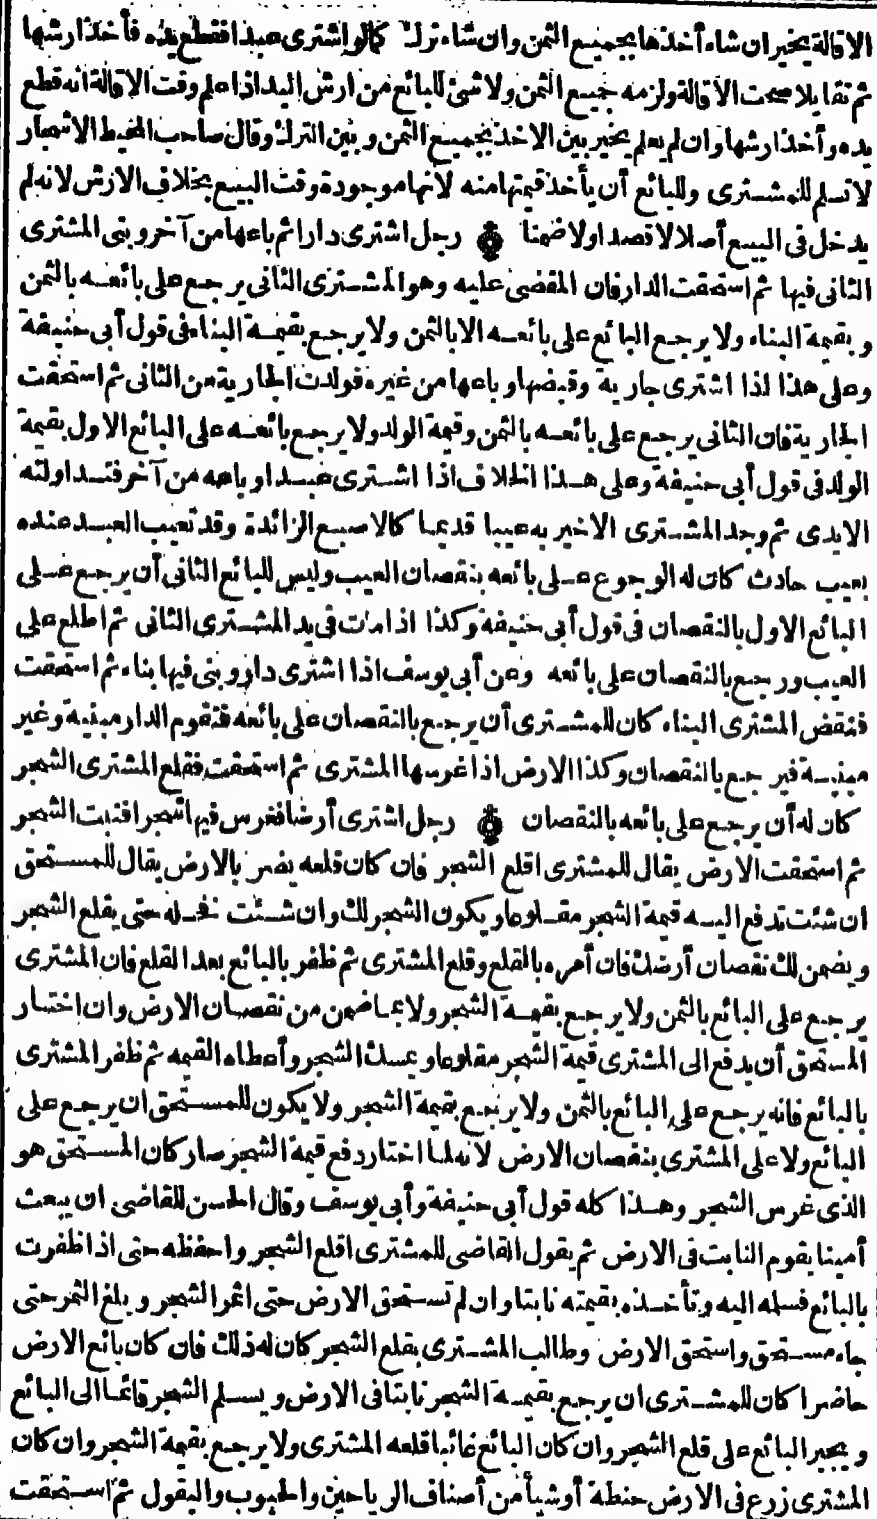 الاقالة يخير ان شاء أخذها بجميع الثمن وان شاء ترك كمالو اشترى عبدا فقطع يده فأخذ ارشها
ثم تقايلا صحت الاقالة ولزمه جميع الثمن ولا شئ للبائع من ارش اليد اذا علم وقت الاقالة انه قطع
يده وأخذ ارشها وان لم يعلم يخير بين الاخذ بجميع الثمن وبين الترك وقال صاحب المحيط الاشجار
لا تسلم للمشترى وللبائع أن يأخذ قيمتها منه لانها موجودة وقت البيع بخلاف الارش لانه لم
يدخل فى البيع أصلا لا قصدا ولا ضمنا رجل اشترى دارا ثم باعها من آخر وبنى المشترى
الثانى فيها ثم استحقت الدار فان المقضى عليه وهو المشترى الثانى يرجع على بائعه بالثمن
وبقيمة البناء ولا يرجع البائع على بائعه الا بالثمن ولا يرجع بقيمة البناء فى قول أبى حنيفة
وعلى هذا اذا اشترى جارية وقبضها وباعها من غيره فولدت الجارية من الثانى ثم استحقت
الجارية فان الثانى يرجع على بائعه بالثمن وقيمة الولد ولا يرجع بائعه على البائع الاول بقيمة
الولد فى قول أبى حنيفة وعلى هذا الخلاف اذا اشترى عبدا وباعه من آخر فتداولته
الايدى ثم وجد المشترى الاخير به عيبا قديما كالاصبع الزائدة وقد تعيب العبد عنده
بعيب حادث كان له الرجوع على بائعه بنقصان العيب وليس للبائع الثانى أن يرجع على
البائع الاول بالنقصان فى قول أبى حنيفة وكذا اذا مات فى يد المشترى الثانى ثم اطلع على
العيب ورجع بالنقصان على بائعه وعن أبى يوسف اذا اشترى دارا وبنى فيها بناء ثم استحقت
فنقض المشترى البناء كان للمشترى أن يرجع بالنقصان على بائعه فتقوم الدار مبنية وغير
مبنية فيرجع بالنقصان وكذا الارض اذا غرسها المشترى ثم استحقت فقلع المشترى الشجر
كان له أن يرجع على بائعه بالنقصان رجل اشترى أرضا فغرس فيها شجرا فنبت الشجر
ثم استحقت الارض يقال للمشترى اقلع الشجر فان كان قلعه يضر بالارض يقال للمستحق
ان شئت تدفع اليه قيمة الشجر مقلوعا ويكون الشجر لك وان شئت نخله حتى يقلع الشجر
ويضمن لك نقصان أرضك فان أمره بالقلع وقلع المشترى ثم ظفر بالبائع بعد القلع فان المشترى
يرجع على البائع بالثمن ولا يرجع بقيمة الشجر ولا بما ضمن من نقصان الارض وان اختار
المستحق أن يدفع الى المشترى قيمة الشجر مقلوعا ويمسك الشجر وأعطاه القيمه ثم ظفر المشترى
بالبائع فانه يرجع على البائع بالثمن ولا يرجع بقيمة الشجر ولا يكون للمستحق ان يرجع على
البائع ولا على المشترى بنقصان الارض لانه لما اختار دفع قيمة الشجر صار كان المستحق هو
الذى غرس الشجر وهذا كله قول أبى حنيفة وأبى يوسف وقال الحسن للقاضى ان يبعث
أمينا يقوم النابت فى الارض ثم يقول القاضى للمشترى اقلع الشجر واحفظه حتى اذا ظفرت
بالبائع فسلمه اليه وتأخذه بقيمته نابتا وان لم تستحق الارض حتى اثمر الشجر وبلغ الثمر حتى
جاء مستحق واستحق الارض وطالب المشترى بقلع الشجر كان له ذلك فان كان بائع الارض
حاضرا كان للمشترى ان يرجع بقيمة الشجر نابتا فى الارض ويسلم الشجر قائما الى البائع
ويجبر البائع على قلع الشجر وان كان البائع غائبا قلعه المشترى ولا يرجع بقيمة الشجر وان كان
المشترى زرع فى الارض حنطة أو شيأ من أصناف الرياحين والحبوب والبقول ثم استحقت